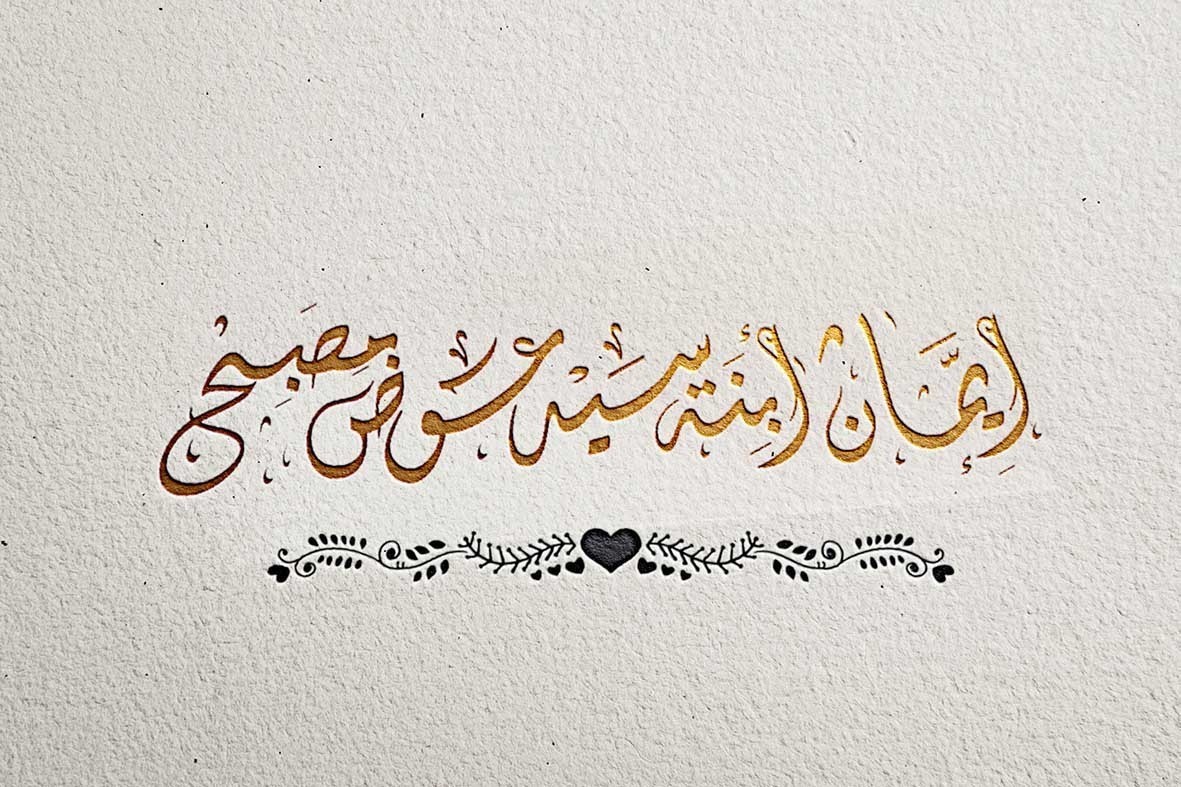 إيمان أبنة سيد عوض مصبح